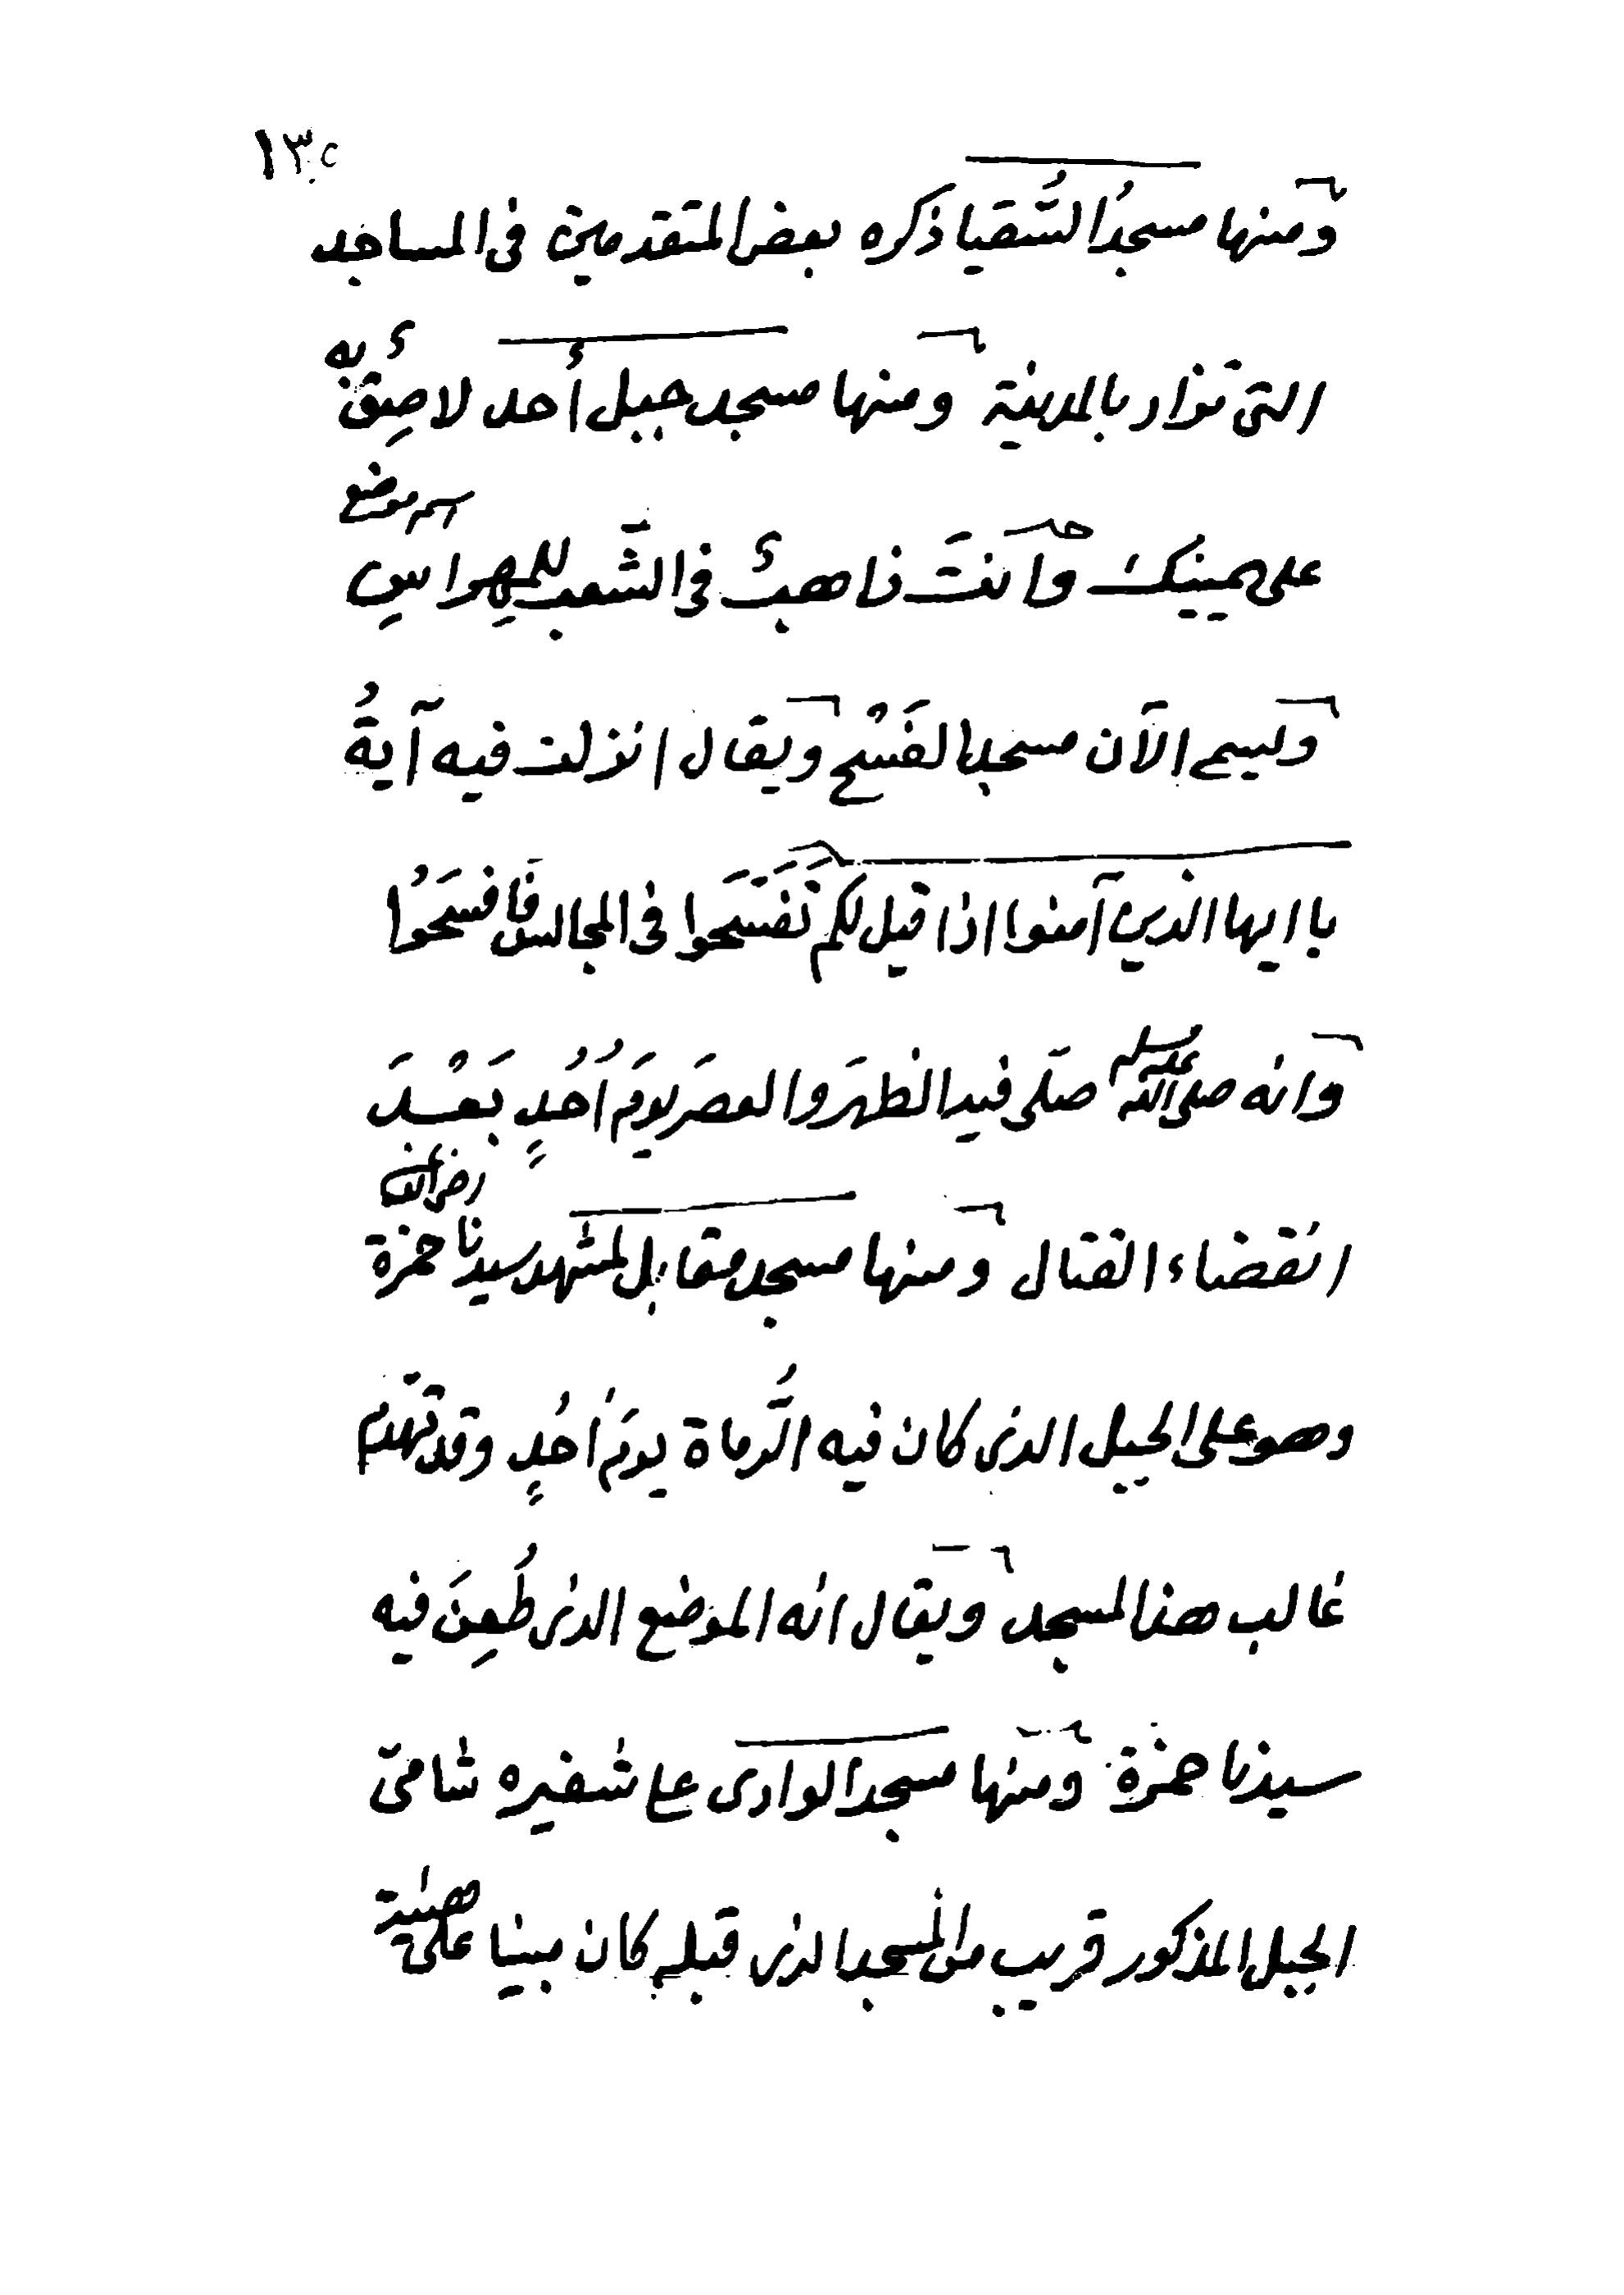 ١٣٢
ومنها مسجدُ السُّقيا ذكره بعض المتقدمين في المساجد
التي تزار بالمدينة ومنها مسجد جبل أُحد لاصِقٌ به
اسم موضع
على يمينك وأنتَ ذاهبٌ في الشَّعب للمِهراسِ
ويسمى الآن مسجد الفَسْح ويقال انزلت فيه آيةُ
يا ايها الذين آمنوا اذا قيل لكم تَفَسَّحوا في المجالس فَافسَحُوا
وانه صلى الله عليه وسلم صَلى فيه الظهرَ والعصرَ يومَ أُحُدٍ بَعْدَ
انقضاء القتال ومنها مسجد مقابل لمشهد سيدنا حمزة رضي الله عنه
وهو على الجبل الذي كان فيه الرُّماة يومَ أحُدٍ وقد تهَدم
غالب هذا المسجد ويقال انه الموضع الذي طُعِنَ فيه
سيدنا حمزة ومنها مسجد الوادى على شفيره شامىّ
الجبل المذكور قريب من المسجد الذي قبله كان مبنيا على هيئة